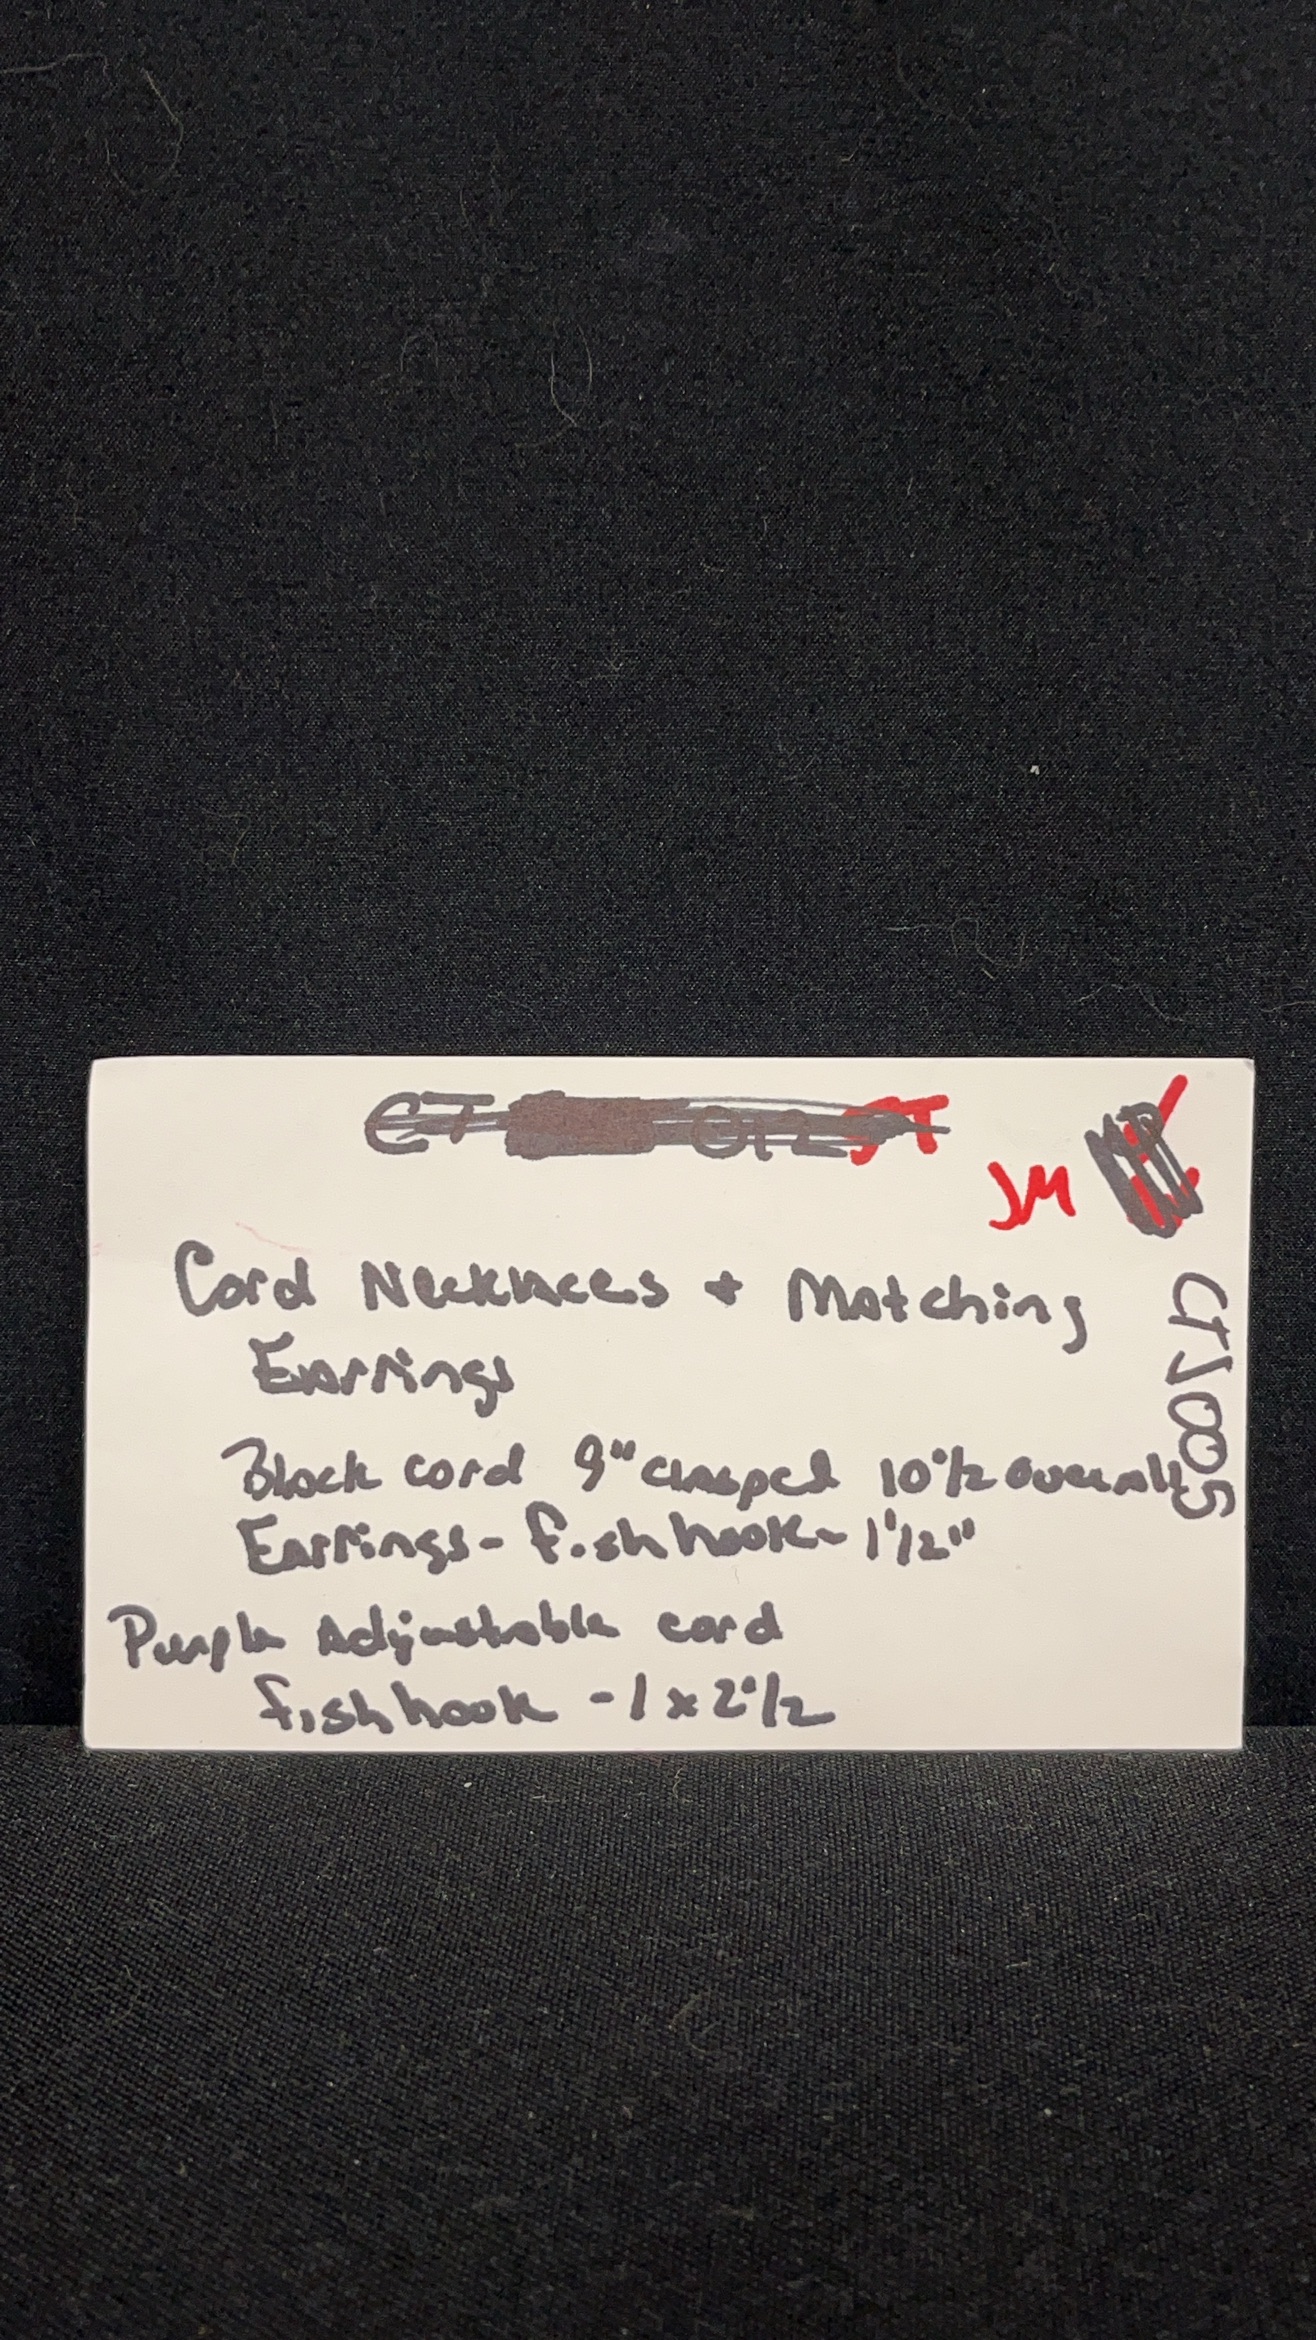 JM
Cord Necklaces + Matching
Earrings
Black cord 9" clasped 10 1/2 overall
Earrings - fishhook - 1 1/2"
Purple Adjustable cord
fishhook - 1 x 2 1/2
CTJ005